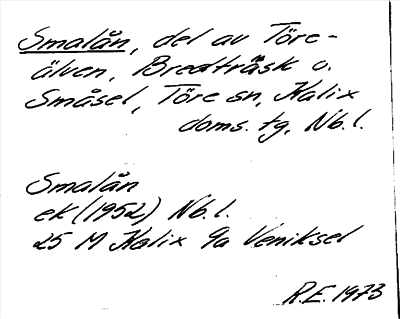 Smalån, del av Töre-
älven, Bredträsk o.
Småsel, Töre sn, Kalix
doms. tg, Nb.l.
Smalån
ek (1952) Nb.l.
25 M Kalix 9a Veniksel
R.E. 1973